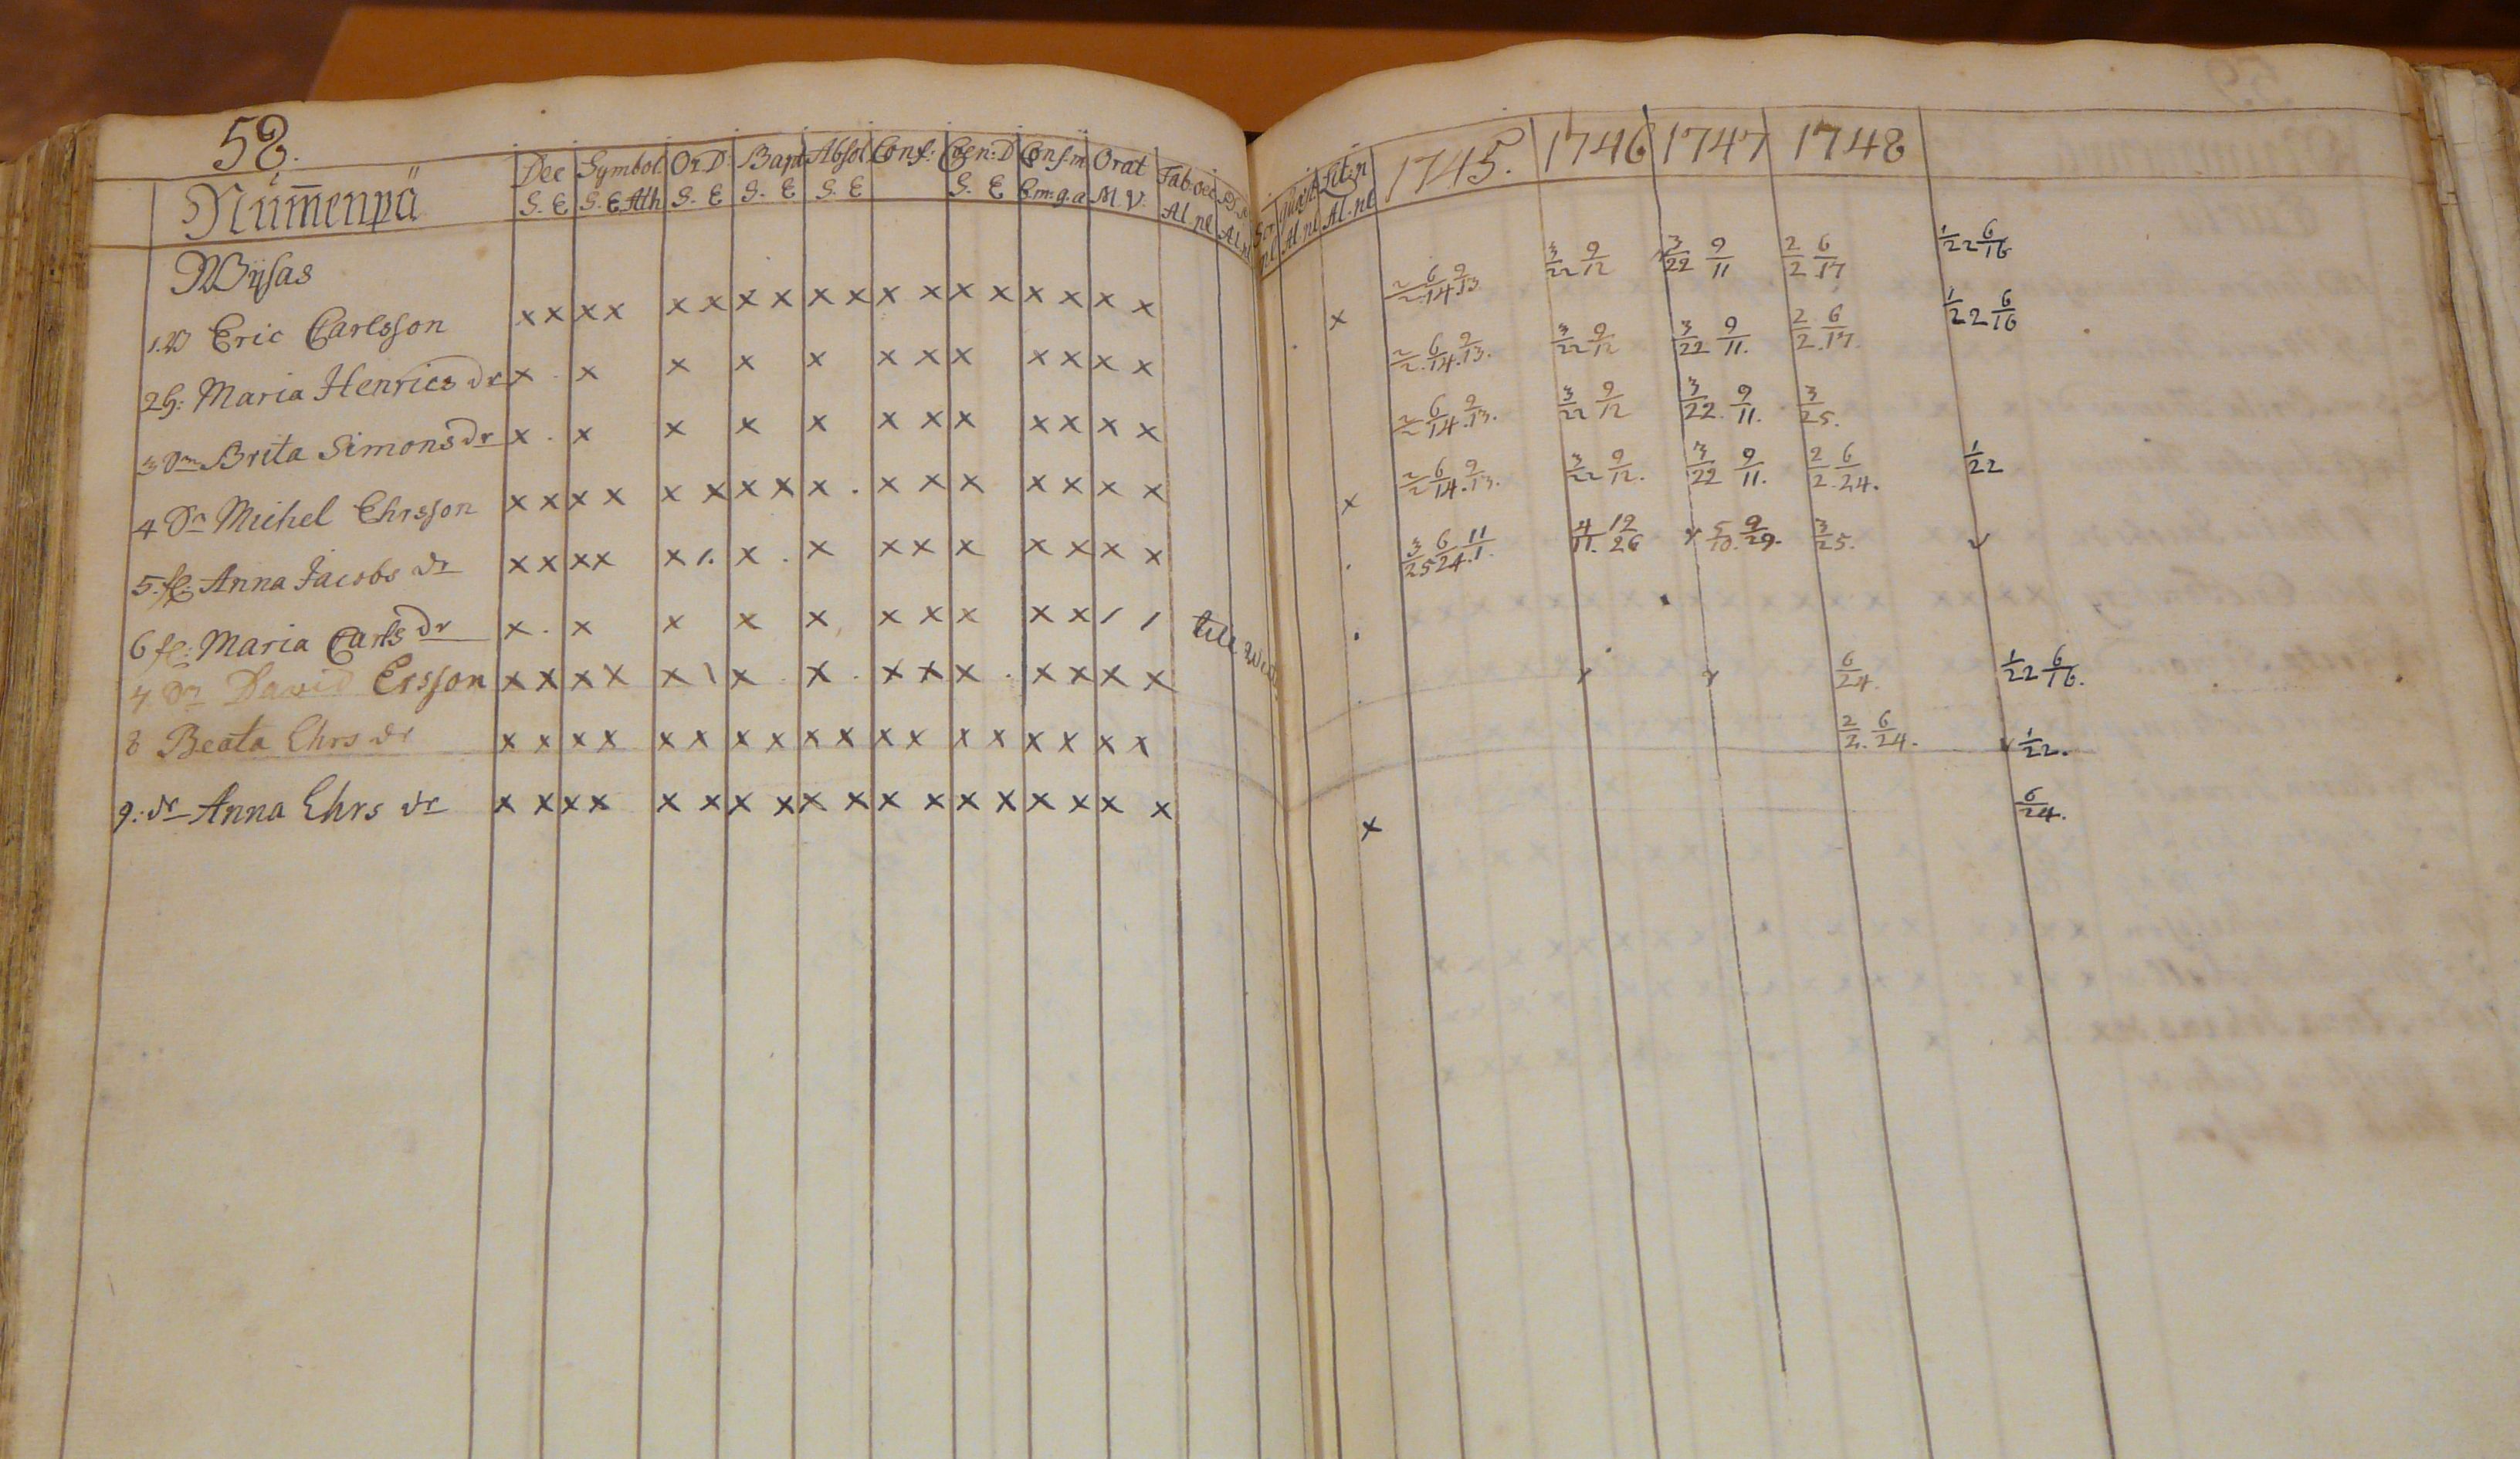 58.
Nūm̄enpä
Dec Symbol. Or.D: Bapt Absol Conf: Cœn:D Confm Orat Tab:oec
S. E S. E Ath S. E S. E S. E S. E Em: g. a M. V. Al. nl
Quæst Lit:n 1745. 1746 1747 1748
Al. nl Al. nl
Wÿsas
1. W Eric Carlsson x x x x x x x x x x x x x x x x x x x 2/2. 6/14. 9/13 3/22 9/12 3/22 9/11 2/2 6/17 1/22 6/16
2 H: Maria Henrics dr x . x x x x x x x x x x x 2/2. 6/14. 9/13. 3/22 9/12 3/22 9/11. 2/2. 6/17. 1/22 6/16
3 Dm Brita Simons dr x . x x x x x x x x x x x 2/2 6/14. 9/13. 3/22 9/12 3/22. 9/11. 3/25.
4 Sn Michel Ehrsson x x x x x x x x x . x x x x x x x x 2/2 6/14. 9/13. 3/22 9/12. 3/22 9/11. 2/2. 6/24. 1/22
5. fl: Anna Jacobs dr x x x x x /. x . x x x x x x x x . 3/25 6/24. 11/1. 4/11. 12/26 v 5/10. 9/29. 3/25. v
6 fl: Maria Carls dr x . x x x x x x x x x / / till .
7 Sn David Ersson x x x x x \ x . x . x x x . x x x x v v 6/24. 1/22 6/16.
8 Beata Ehrs dr x x x x x x x x x x x x x x x x x x 2/2. 6/24. v 1/22.
9: dr Anna Ehrs dr x x x x x x x x x x x x x x x x x x x 6/24.